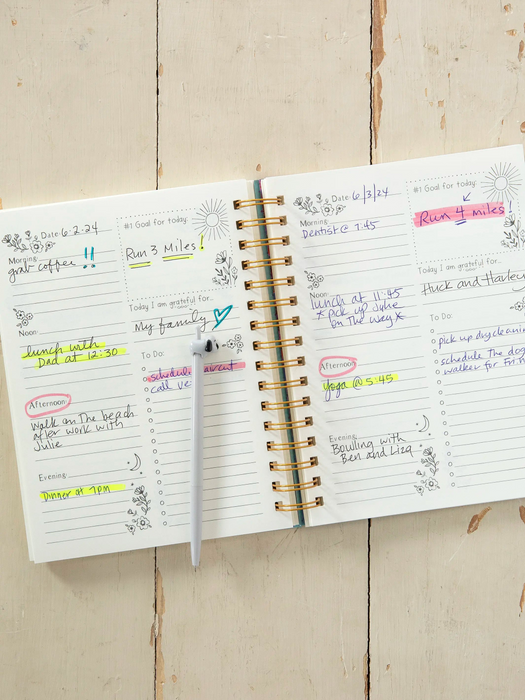 Date: 6.2.24
Morning:
grab coffee !!
Noon:
lunch with
Dad at 12:30
Afternoon:
walk on the beach
after work with
Julie
Evening:
Dinner at 7pm
#1 Goal for today:
Run 3 Miles!
Today I am grateful for...
My family
To Do:
schedule haircut
call ve
Date: 6/3/24
Morning:
Dentist @ 7:45
Noon:
lunch at 11:45
*pick up Julie
on the way*
Afternoon:
yoga @ 5:45
Evening:
Bowling with
Ben and Liza
#1 Goal for today:
Run 4 miles!
Today I am grateful for...
Huck and
To Do:
pick up dry cleani
schedule the dog
walker for Fri